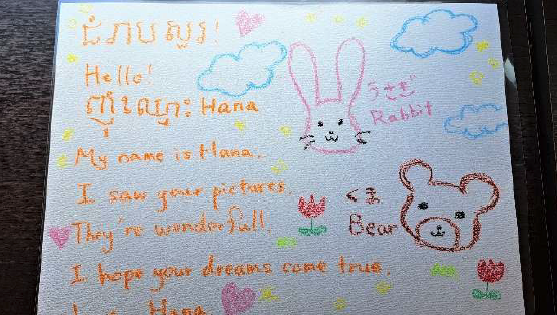 ជំរាបសួរ!
Hello!
ញុំឈ្មោះ Hana
My name is Hana.
I saw your pictures.
They're wonderfull.
I hope your dreams come true.
Hana
うさぎ
Rabbit
くま
Bear